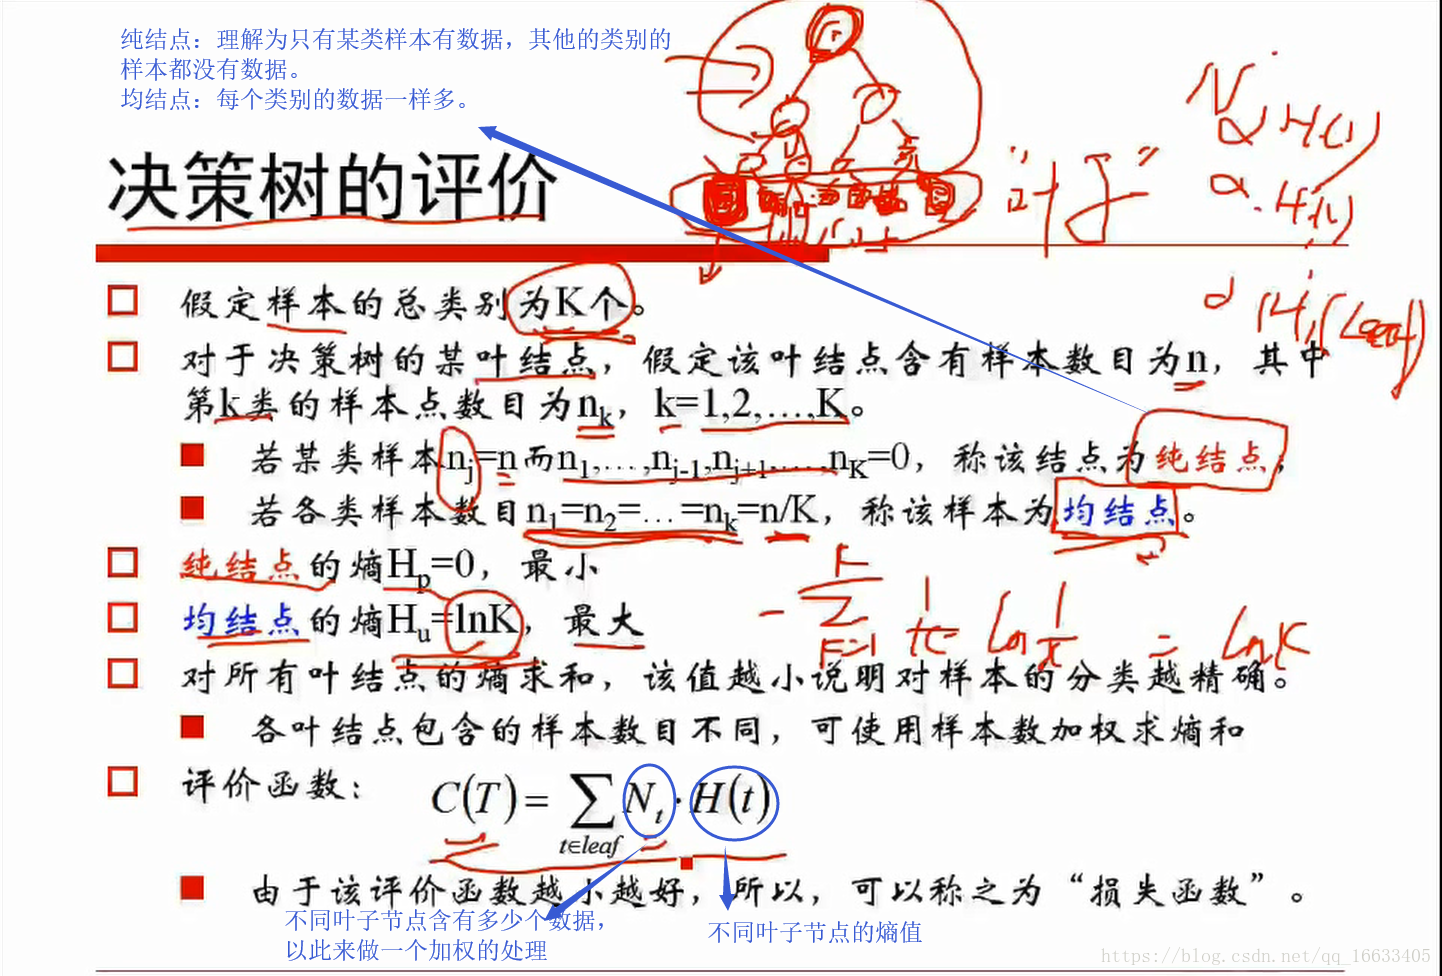 纯结点：理解为只有某类样本有数据，其他的类别的
样本都没有数据。
均结点：每个类别的数据一样多。
决策树的评价
"叶子"
N
α H(1)
α. H(2)
α H(leaf)
假定样本的总类别为K个。
对于决策树的某叶结点，假定该叶结点含有样本数目为n，其中
第k类的样本点数目为nk，k=1,2,…,K。
若某类样本nj=n而n1,…,nj-1,nj+1,…,nK=0，称该结点为纯结点；
若各类样本数目n1=n2=…=nk=n/K，称该样本为均结点。
纯结点的熵Hp=0，最小
均结点的熵Hu=lnK，最大
- K∑k=1 1/K ln 1/K = lnK
对所有叶结点的熵求和，该值越小说明对样本的分类越精确。
各叶结点包含的样本数目不同，可使用样本数加权求熵和
评价函数：
C(T)=∑t∈leaf Nt·H(t)
由于该评价函数越小越好，所以，可以称之为“损失函数”。
不同叶子节点含有多少个数据，
以此来做一个加权的处理
不同叶子节点的熵值
https://blog.csdn.net/qq_16633405